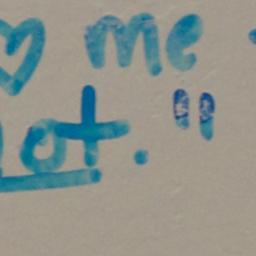 ♡ me
lot."